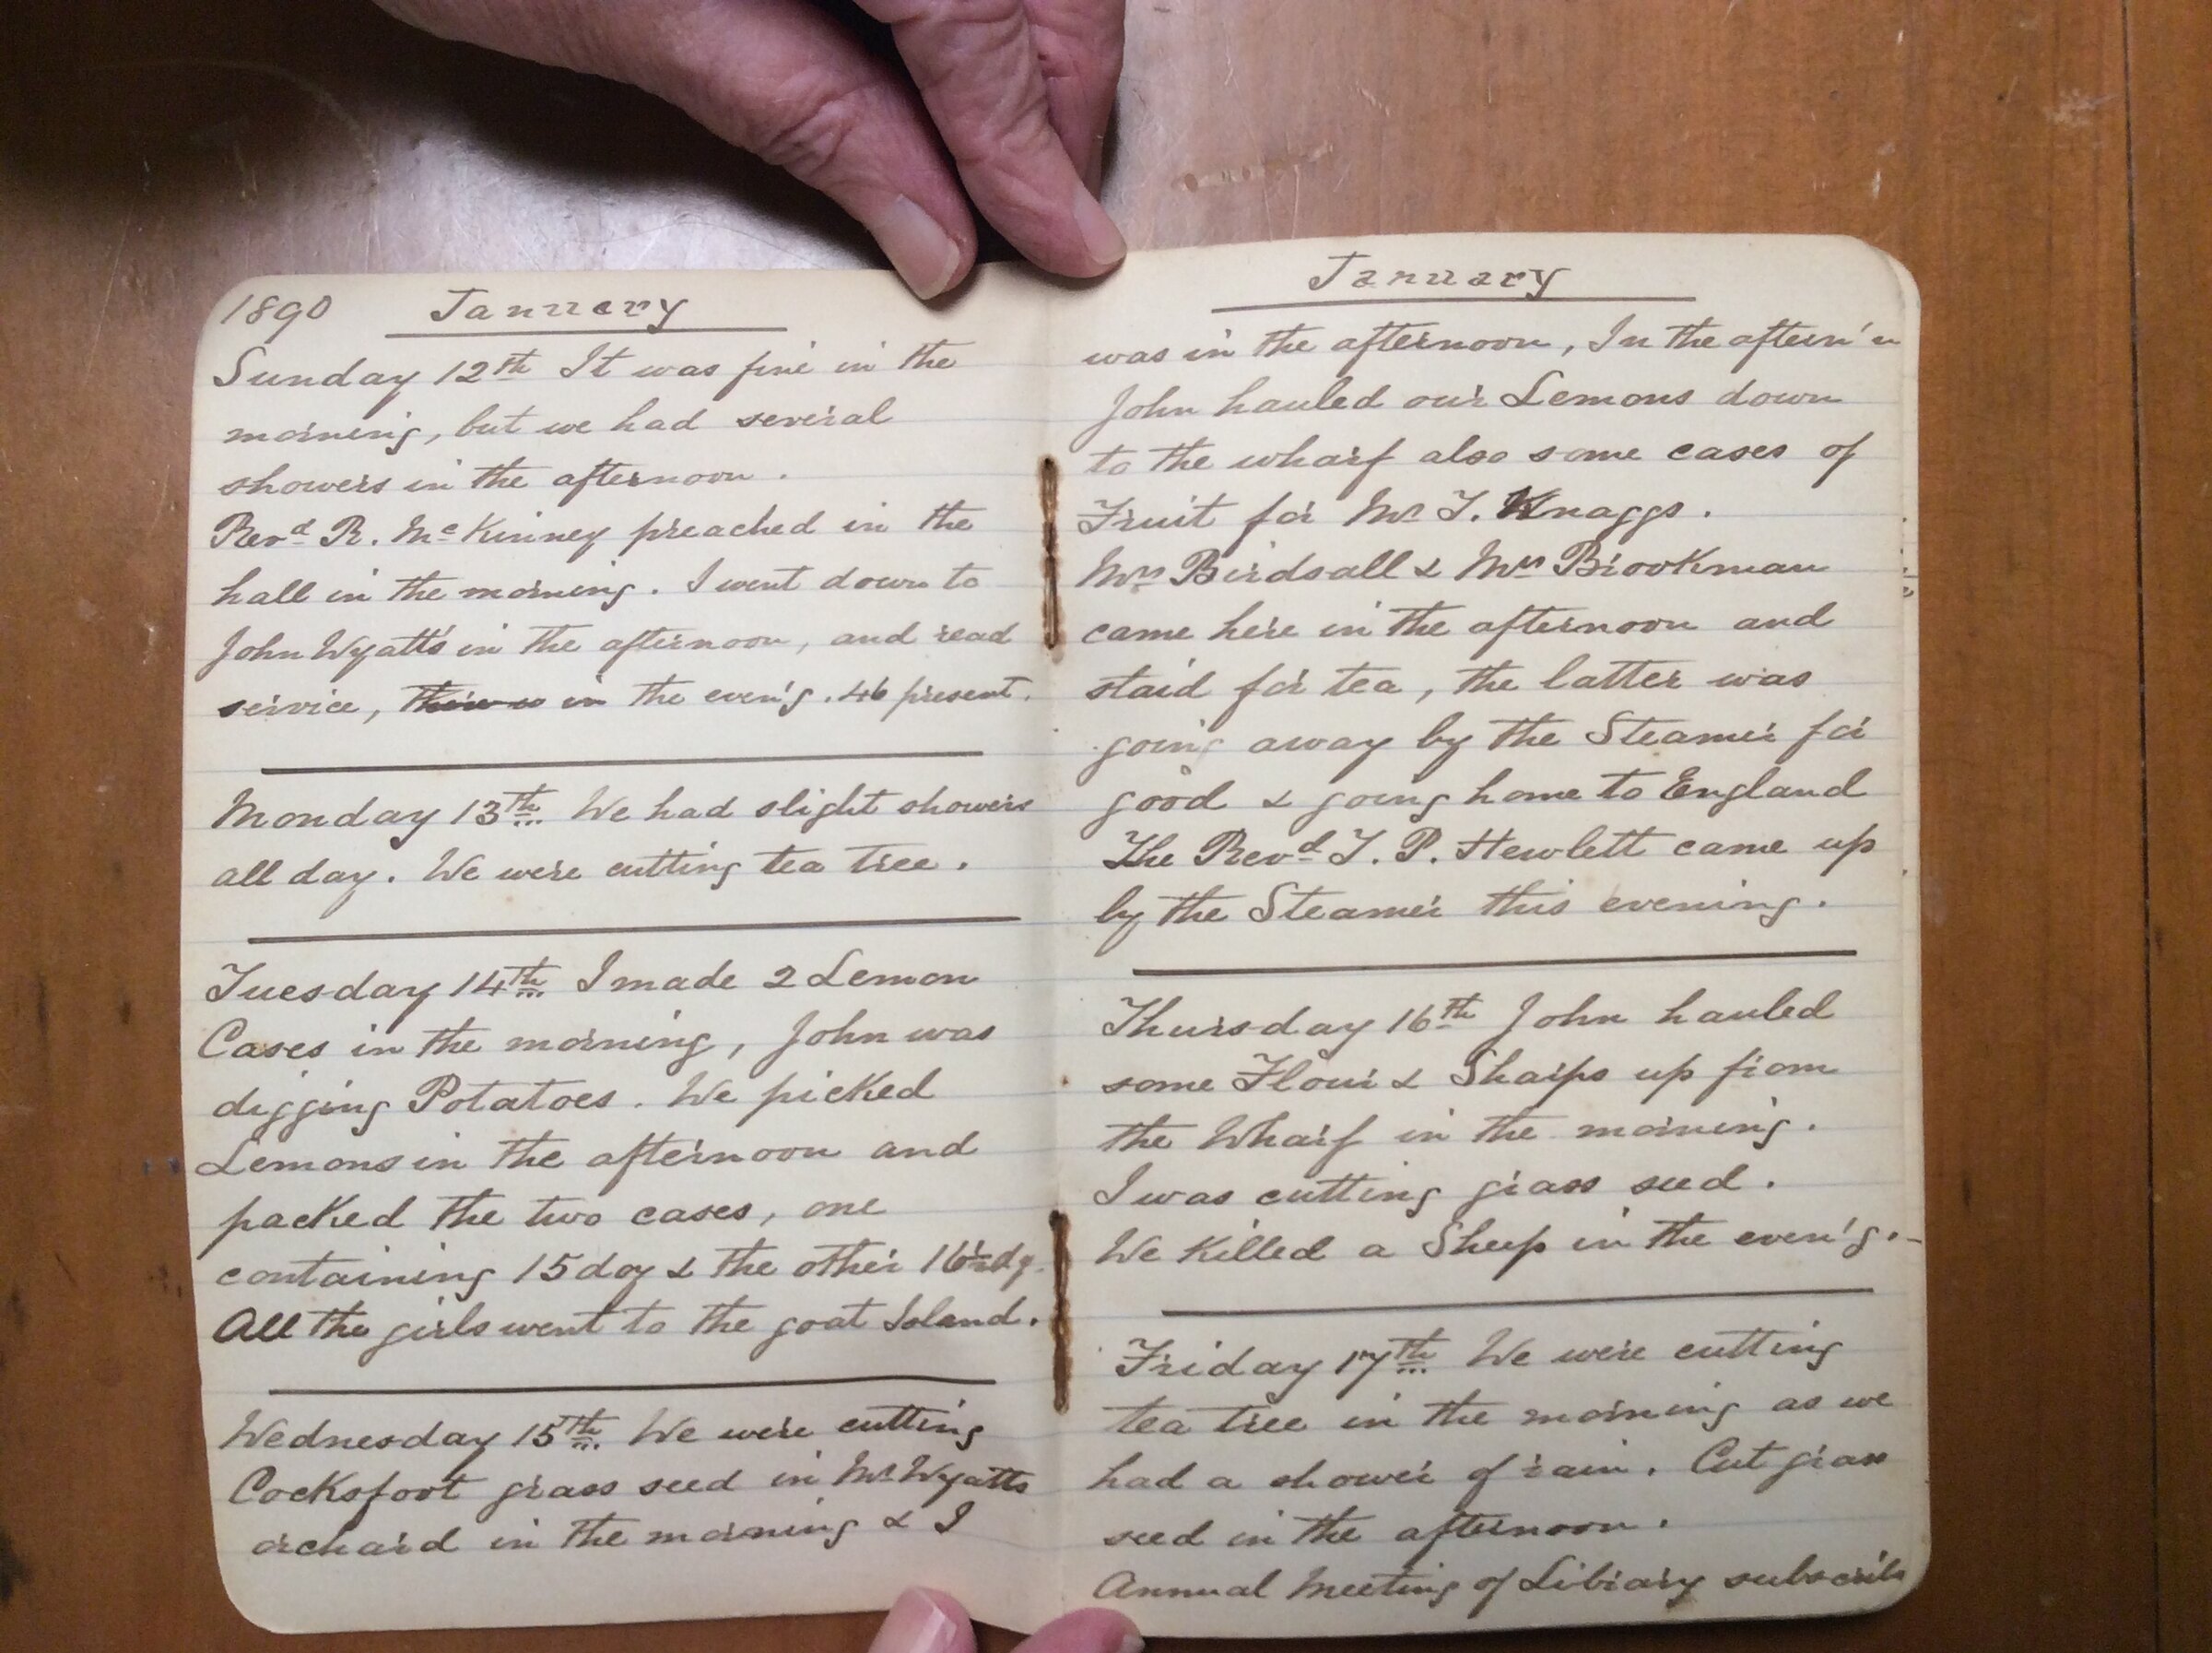 1890 January
Sunday 12th It was fine in the
morning, but we had several
showers in the afternoon.
Revd R. McKinney preached in the
hall in the morning. I went down to
John Wyatt's in the afternoon, and read
service, in the even'g. 46 present.
Monday 13th We had slight showers
all day. We were cutting tea tree.
Tuesday 14th I made 2 Lemon
Cases in the morning, John was
digging Potatoes. We picked
Lemons in the afternoon and
packed the two cases, one
containing 15 doz & the other
All the girls went to the goat Island.
Wednesday 15th We were cutting
Cocksfoot grass seed in Mr Wyatts
orchard in the morning & I
January
was in the afternoon, In the aftern'n
John hauled our Lemons down
to the wharf also some cases of
Fruit for Mr T. Knaggs.
Mrs Birdsall & Mrs Brookman
came here in the afternoon and
staid for tea, the latter was
going away by the Steamer for
good & going home to England
The Revd T. P. Hewlett came up
by the Steamer this evening.
Thursday 16th John hauled
some Flour & Sharps up from
the Wharf in the morning.
I was cutting grass seed.
We Killed a Sheep in the even'g.-
Friday 17th We were cutting
tea tree in the morning as we
had a shower of rain. Cut grass
seed in the afternoon.
Annual Meeting of Library subscrib